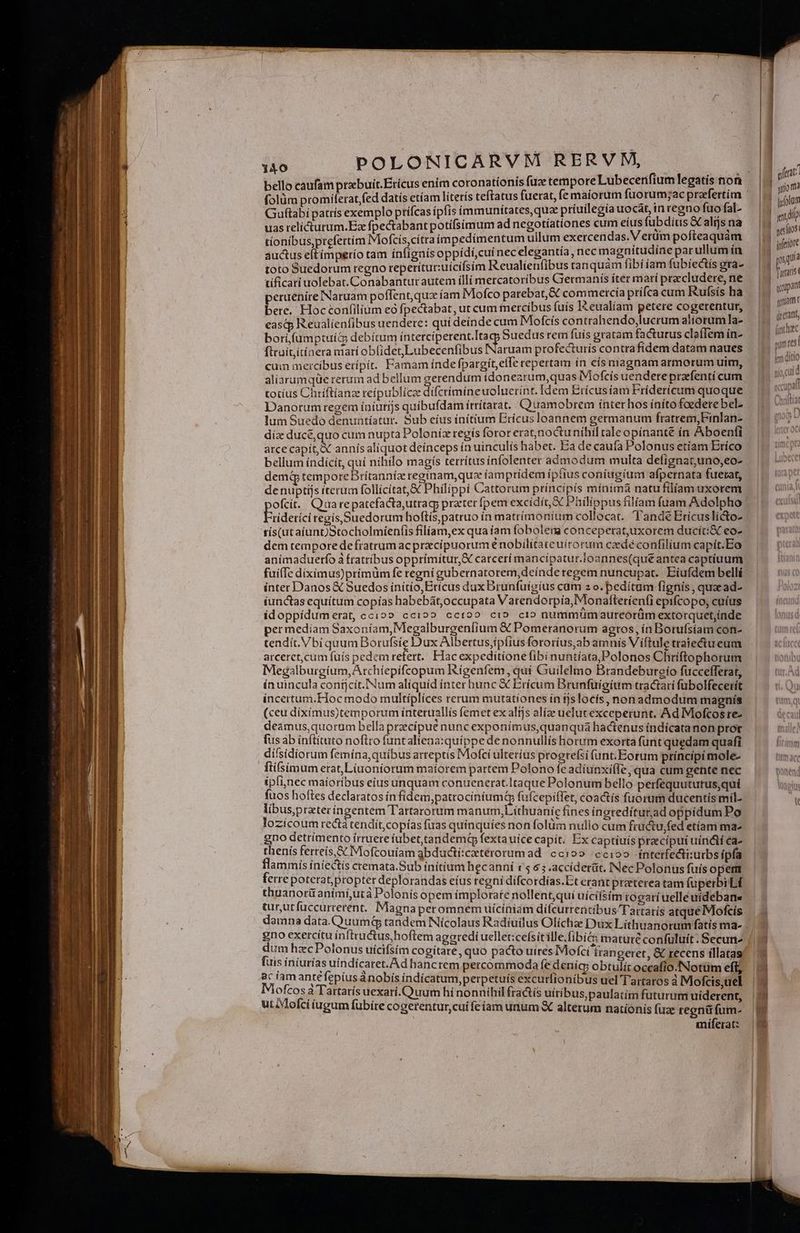 140 POLONICARVM RERVM,
bello caufam præbuit. Ericus enim coronationis fuæ tempore Lubecenfium legatis non
folùm promiferat, fed datis etiam literis teftatus fuerat, fe maiorum fuorum, ac præfertim
Guftabi patris exemplo prifcas ipfis immunitates, quæ priuilegia uocãt, in regno fuo fal-
uas relicturum. Ex fpectabant potifsimum ad negotiationes cum eius fubditis & alijs na
tionibus, præfertim Mofcis, citra impedimentum ullum exercendas. Verùm pofteaquàm
auctus eft imperio tam infignis oppidi, cui nec elegantia, nec magnitudine par ullum in
toto Suedorum regno reperitur: uicifsim Reualienfibus tanquàm fibi iam fubiectis gra-
tificari uolebat. Conabantur autem illi mercatoribus Germanis iter mari præcludere, ne
peruenire Naruam poffent, quæ iam Mofco parebat, & commercia prifca cum Rufsis ha
bere. Hoc confilium eò fpectabat, ut cum mercibus fuis Reualiam petere cogerentur,
easq́ Reualienfibus uendere: qui deinde cum Mofcis contrahendo, lucrum aliorum la-
bori, fumptuiq́ debitum interciperent. Itaq́ Suedus rem fuis gratam facturus claffem in-
ftruit, itinera mari obfidet, Lubecenfibus Naruam profecturis contra fidem datam naues
cum mercibus eripit. Famam inde fpargit, effe repertam in eis magnam armorum uim,
aliarumque rerum ad bellum gerendum idonearum, quas Mofcis uendere præfenti cum
totius Chriftianæ reipublicæ difcrimine uoluerint. Idem Ericus iam Fridericum quoque
Danorum regem iniurijs quibufdam irritarat. Quamobrem inter hos inito fœdere bel-
lum Suedo denuntiatur. Sub eius initium Ericus Ioannem germanum fratrem, Finlan-
diæ ducẽ, quo cum nupta Poloniæ regis foror erat, noctu nihil tale opinantẽ in Aboenfi
arce capit, & annis aliquot deinceps in uinculis habet. Ea de caufa Polonus etiam Erico
bellum indicit, qui nihilo magis territus infolenter admodum multa defignat, uno, eo-
demq́ tempore Britanniæ reginam, quæ iampridem ipfius coniugium afpernata fuerat,
de nuptijs iterum follicitat, & Philippi Cattorum principis minimã natu filiam uxorem
pofcit. Qua re patefacta, utraq́ præter fpem excidit, & Philippus filiam fuam Adolpho
Friderici regis, Suedorum hoftis, patruo in matrimonium collocat. Tandẽ Ericus licto-
ris (ut aiunt) Stocholmienfis filiam, ex qua iam fobolem conceperat, uxorem ducit: & eo-
dem tempore de fratrum ac præcipuorum è nobilitate uirorum cæde confilium capit. Eo
animaduerfo à fratribus opprimitur, & carceri mancipatur. Ioannes (quẽ antea captiuum
fuiffe diximus) primùm fe regni gubernatorem, deinde regem nuncupat. Eiufdem belli
inter Danos & Suedos initio, Ericus dux Brunfuigius cum 20. peditum fignis, quæ ad-
iunctas equitum copias habebãt, occupata Varendorpia, Monafterienfi epifcopo, cuius
id oppidum erat, ccɪɔɔ ccɪɔɔ ccɪɔɔ cɪɔ cɪɔ nummũm aureorũm extorquet, inde
per mediam Saxoniam, Megalburgenfium & Pomeranorum agros, in Borufsiam con-
tendit. Vbi quum Borufsiæ Dux Albertus, ipfius fororius, ab amnis Viftulæ traiectu eum
arceret, cum fuis pedem refert. Hac expeditione fibi nuntiata, Polonos Chriftophorum
Megalburgium, Archiepifcopum Rigenfem, qui Guilelmo Brandeburgio fuccefferat,
in uincula conijcit. Num aliquid inter hunc & Ericum Brunfuigium tractari fubolfecerit
incertum. Hoc modo multiplices rerum mutationes in ijs locis, non admodum magnis
(ceu diximus) temporum interuallis femet ex alijs aliæ uelut exceperunt. Ad Mofcos re-
deamus, quorum bella præcipuè nunc exponimus, quanquã hactenus indicata non pror
fus ab inftituto noftro funt aliena: quippe de nonnullis horum exorta funt quædam quafi
difsidiorum femina, quibus arreptis Mofci ulterius progrefsi funt. Eorum principi mole-
ftifsimum erat, Liuoniorum maiorem partem Polono fe adiunxiffe, qua cum gente nec
ipfi, nec maioribus eius unquam conuenerat. Itaque Polonum bello perfequuturus, qui
fuos hoftes declaratos in fidem, patrociniumq́ fufcepiffet, coactis fuorum ducentis mil-
libus, præter ingentem Tartarorum manum, Lithuaniæ fines ingreditur, ad oppidum Po
lozicoum rectà tendit, copias fuas quinquies non folùm nullo cum fructu, fed etiam ma-
gno detrimento irruere iubet, tandemq́ fexta uice capit. Ex captiuis præcipui uincti ca-
thenis ferreis, & Mofcouiam abducti: cæterorum ad ccɪɔɔ ccɪɔɔ interfecti: urbs ipfa
flammis iniectis cremata. Sub initium hec anni 1563. acciderũt. Nec Polonus fuis opem
ferre poterat, propter deplorandas eius regni difcordias. Et erant præterea tam fuperbi Li
thuanorũ animi, ut à Polonis opem implorare nollent, qui uicifsim rogari uelle uideban-
tur, ut fuccurrerent. Magna per omnem uiciniam difcurrentibus Tartaris atque Mofcis
damna data. Quumq́ tandem Nicolaus Radiuilus Olichæ Dux Lithuanorum fatis ma-
gno exercitu inftructus, hoftem aggredi uellet: cefsit ille, fibiq́ maturè confuluit. Secun-
dum hæc Polonus uicifsim cogitare, quo pacto uires Mofci frangeret, & recens illatas
fuis iniurias uindicaret. Ad hanc rem percommoda fe deniq́ obtulit occafio. Notum eft,
ac iam antè fepius à nobis indicatum, perpetuis excurfionibus uel Tartaros à Mofcis, uel
Mofcos à Tartaris uexari. Quum hi nonnihil fractis uiribus, paulatim futurum uiderent,
ut Mofci iugum fubire cogerentur, cui fe iam unum & alterum nationis fuæ regnũ fum-
miferat: